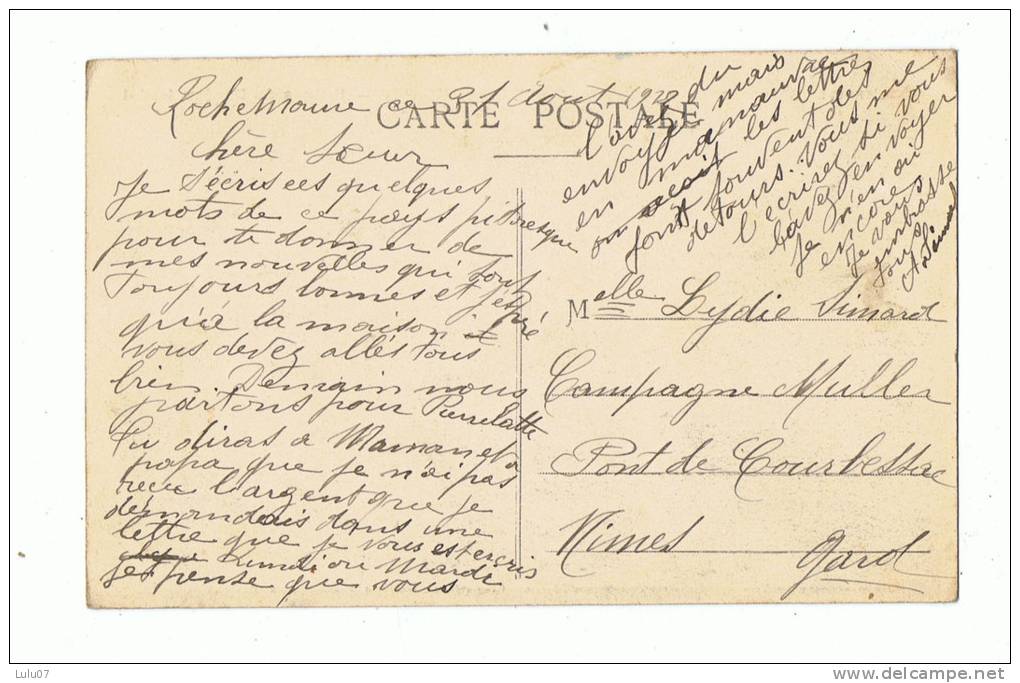 Rochemaure ce 31 Aout 19
CARTE POSTALE
Chère Soeur
Je t'écris ces quelques
mots de ce pays pittoresque
pour te donner de
mes nouvelles qui sont
toujours bonnes et j'espéré
qu'à la maison
vous devez allés tous
bien. Demain nous
partons pour Pierrelatte
Tu diras a Maman et a
papa que je n'ai pas
recu l'argent que je
demandais dans une
lettre que je vous est ecris
Lundi ou Mardi
Je pense que vous
l'avez du
envoyé mais
en manauvre
on sait les lettre
font souvent des
detours. Vous me
l'ecrirez si vous
l'avez envoyer
Je n'en ai
encore
Je vous
embrasse
tous
Melle Lydie Simard
Campagne Muller
Pont de Courbessac
Nimes
Gard
Lulu07
delcampe.net